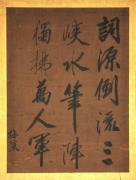 詞源倒流三
峽水筆陣
獨掃萬人軍